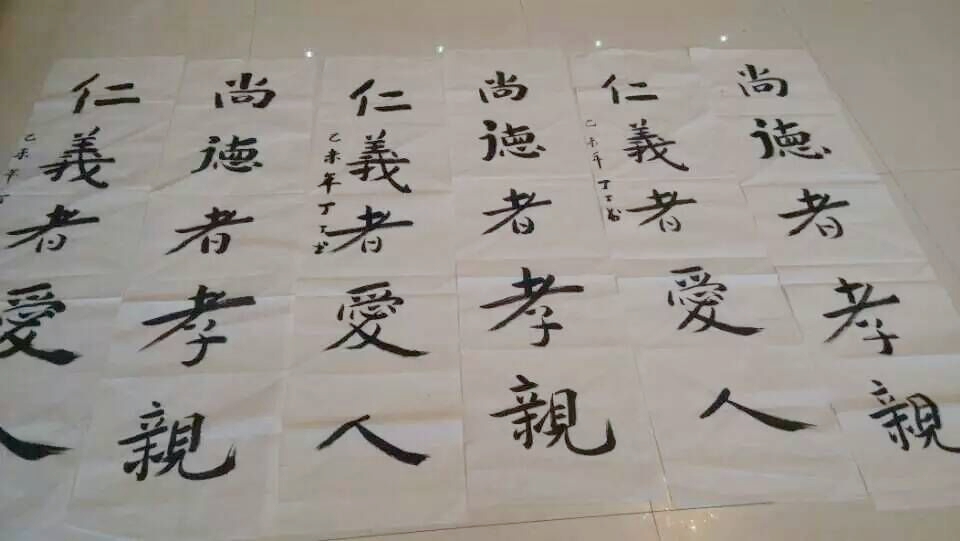 尚德者孝親
仁義者愛人
乙未年丁
尚德者孝親
仁義者愛人
乙未年丁
尚德者孝親
仁義者愛人
乙未年丁